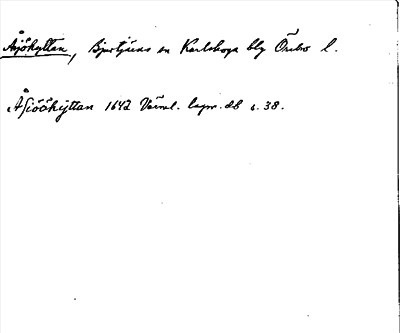 Åsjöhyttan, Bjurtjärns sn Karlskoga bg Örebro l.
Åsiööhyttan 1642 Värml. lagm. db s. 38.